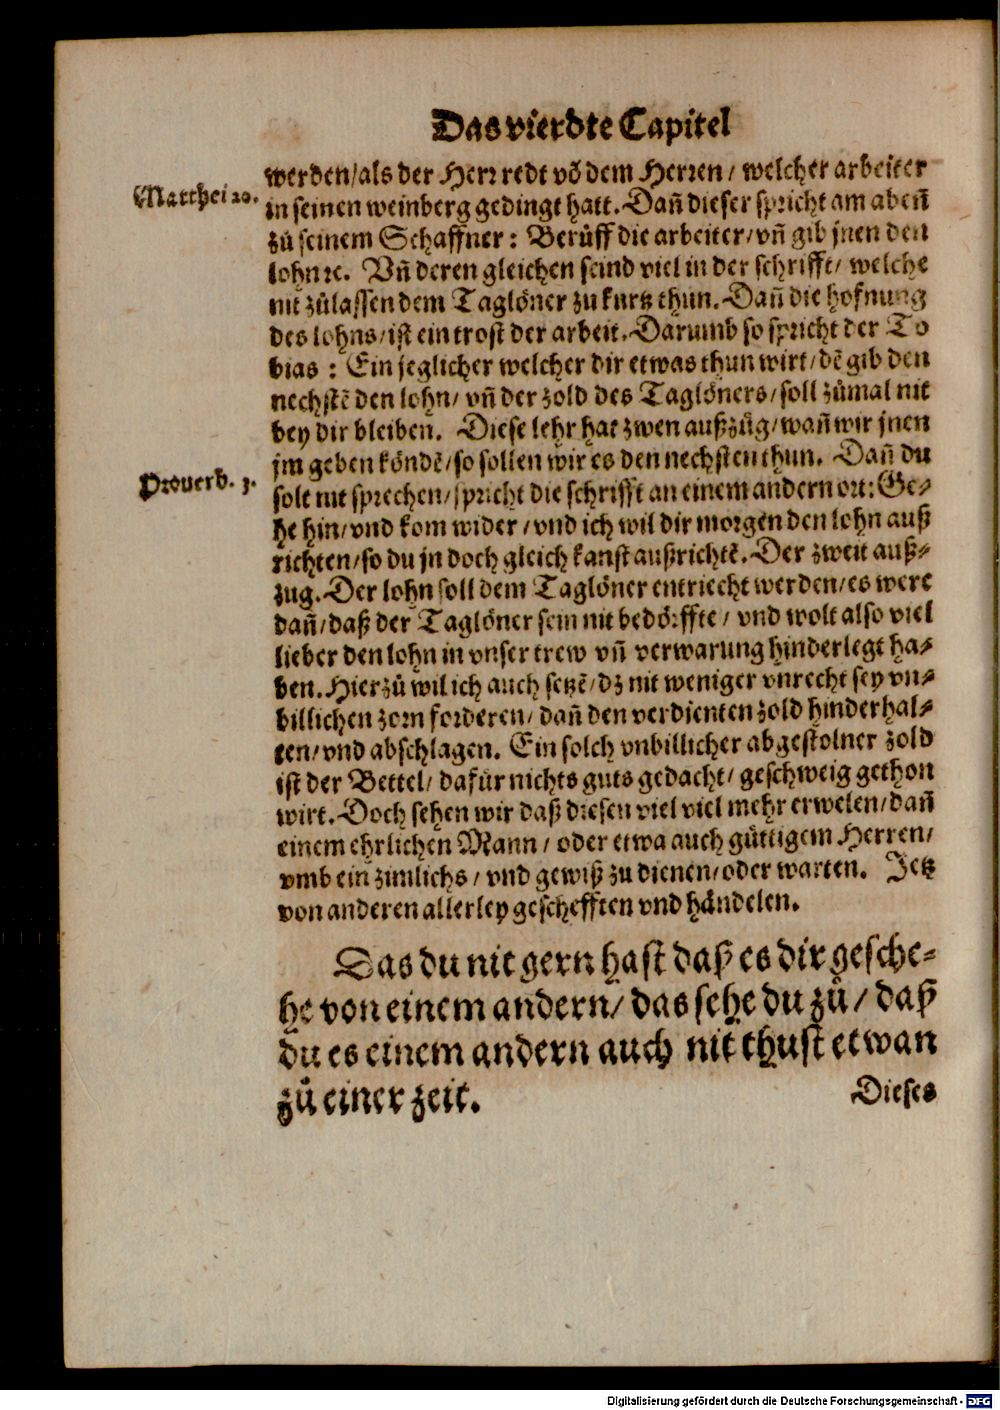 Das vierdte Capitel
werden/als der Herr redt võ dem Herren/ welcher arbeiter
Matthei 20.
in seinen weinberg gedingt hatt. Dañ dieser spricht am abeñ
zů seinem Schaffner: Berůff die arbeiter/vñ gib jnen den
lohn ꝛc. Vñ deren gleichen seind viel in der schrifft/ welche
nit zůlassen dem Taglöner zu kurtz thun. Dañ die hofnung
des lohns/ist ein trost der arbeit. Darumb so spricht der To
bias: Ein jeglicher welcher dir etwas thun wirt/dẽ gib den
nechstẽ den lohn/ vñ der zold des Taglöners/soll zůmal nit
bey dir bleiben. Diese lehr hat zwen außzüg/wañ wir jnen
jm geben köndẽ/so sollen wir es den nechsten thun. Dañ du
Prouerb. 3.
solt nit sprechen/spricht die schrifft an einem andern ort: Ge⸗
he hin/vnd kom wider/vnd ich wil dir morgen den lohn auß
richten/so du jn doch gleich kanst außrichtẽ. Der zweit auß⸗
zug. Der lohn soll dem Taglöner entriecht werden/es were
dañ/daß der Taglöner sein nit bedörffte/ vnd wolt also viel
lieber den lohn in vnser trew vñ verwarung hinderlegt ha⸗
ben. Hierzů wil ich auch setzẽ/dz nit weniger vnrecht sey vn⸗
billichen zorn forderen/dañ den verdienten zold hinderhal⸗
ten/vnd abschlagen. Ein solch vnbillicher abgestolner zold
ist der Bettel/ dafür nichts guts gedacht/ geschweig gethon
wirt. Doch sehen wir daß diesen viel viel mehr erwelen/dañ
einem ehrlichen Mann/ oder etwa auch güttigem Herren/
vmb ein zimlichs/ vnd gewiß zu dienen/oder warten. Jetz
von anderen allerley geschefften vnd händelen.
Das du nit gern hast daß es dir gesche⸗
he von einem andern/ das sehe du zů/ daß
du es einem andern auch nit thust etwan
zů einer zeit.
Dieses
Digitalisierung gefördert durch die Deutsche Forschungsgemeinschaft - DFG